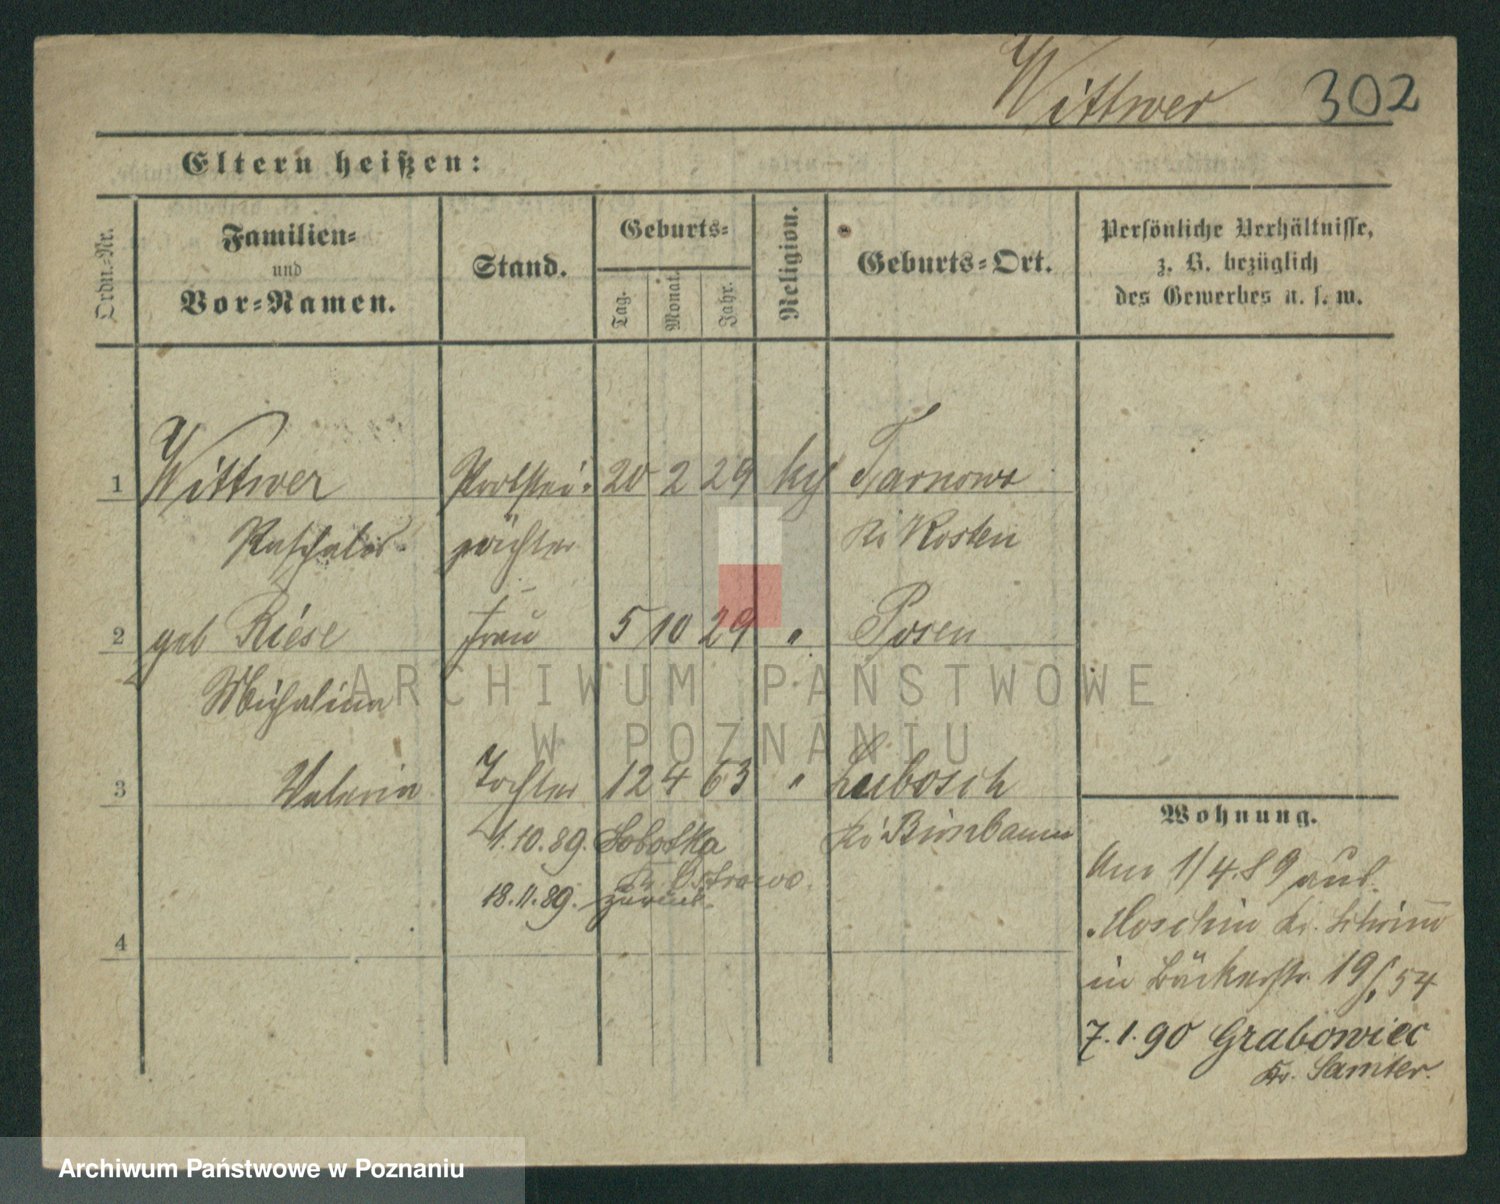 Wittwer 302
Eltern heißen:
Ordn.-Nr.
Familien-
und
Vor-Namen.
Stand.
Geburts-
Tag.
Monat.
Jahr.
Religion.
Geburts-Ort.
Persönliche Verhältnisse,
z. B. bezüglich
des Gewerbes u. s. w.
1 Wittwer Probstei- 20 2 29 Tarnowo
Paschalis pächter Kr Kosten
2 geb Riese Frau 5 10 29 " Posen
Michalina
3 Valeria Tochter 12 4 63 " Lubosch
1.10.89. Sobotka Kr Birnbaum
Kr Ostrowo.
18.11.89. zurück.
4
Wohnung.
Am 1/4.89 aus
Moschin Kr. Schrimm
in Bäckerstr. 19 54
7.1.90 Grabowiec
Kr. Samter.
ARCHIWUM PAŃSTWOWE
W POZNANIU
Archiwum Państwowe w Poznaniu